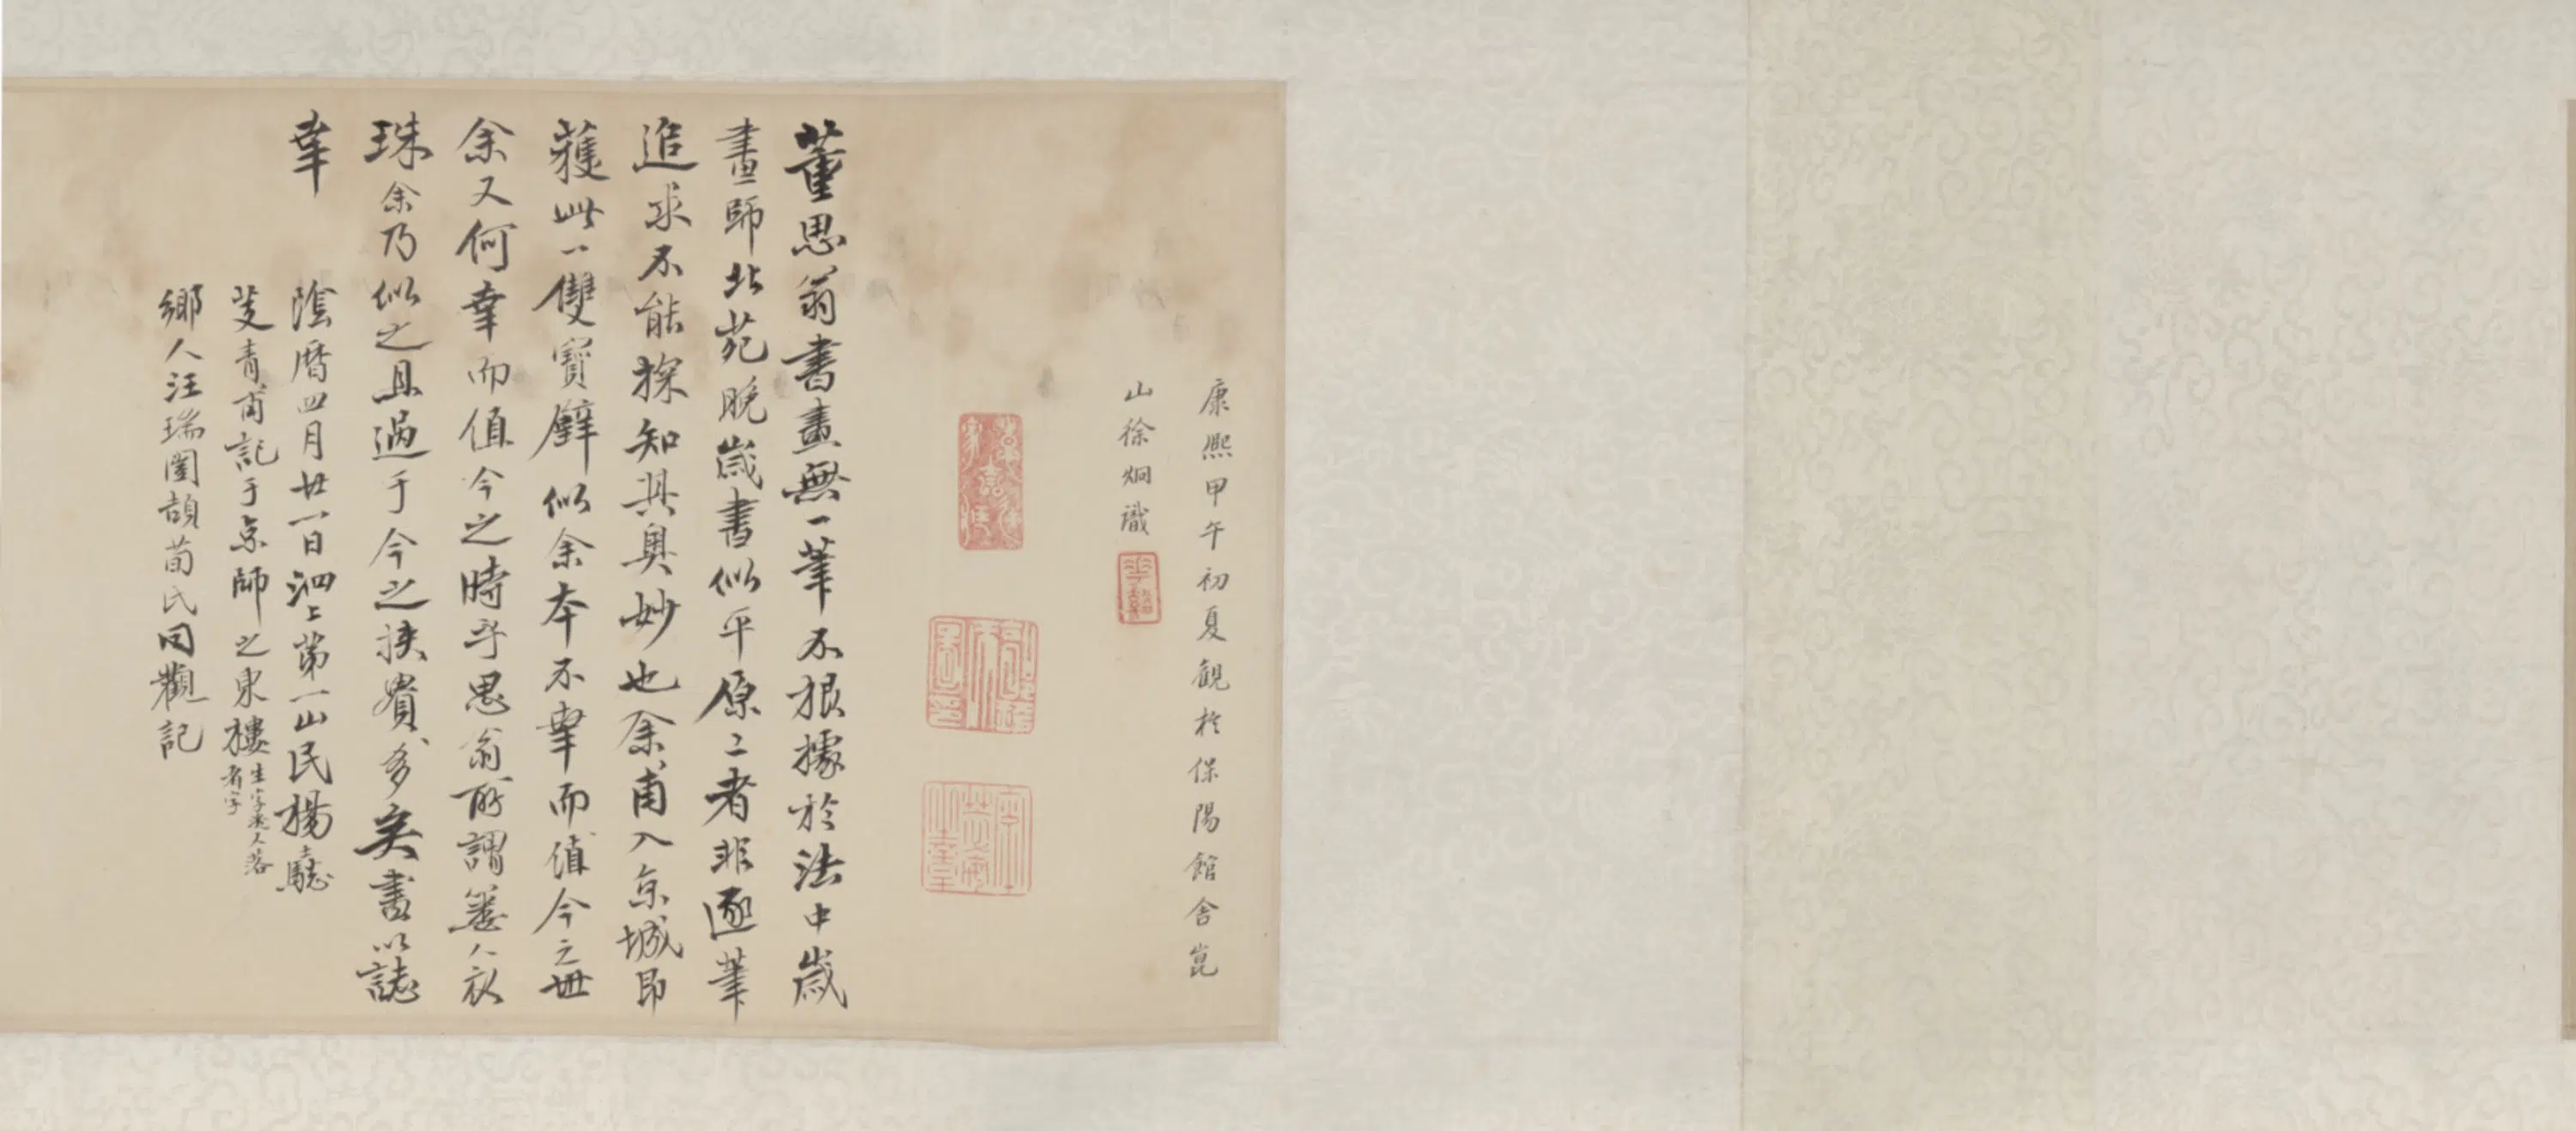 康熙甲午初夏觀於保陽館舍崑
山徐炯識
董思翁書畫無一筆不根據於法中歲
畫師北苑晚歲書似平原二者非逐筆
追求不能探知其奧妙也余甫入京城即
獲此一雙寶璧似余本不幸而值今之世
余又何幸而值今之時乎思翁所謂無人知
珠余乃似之且過于今之挾貲多矣書以誌
幸
陰曆四月廿一日泗上第一山民楊士驄
叟青甫記于京師之東樓
鄉人汪瑞闓頡荀氏同觀記